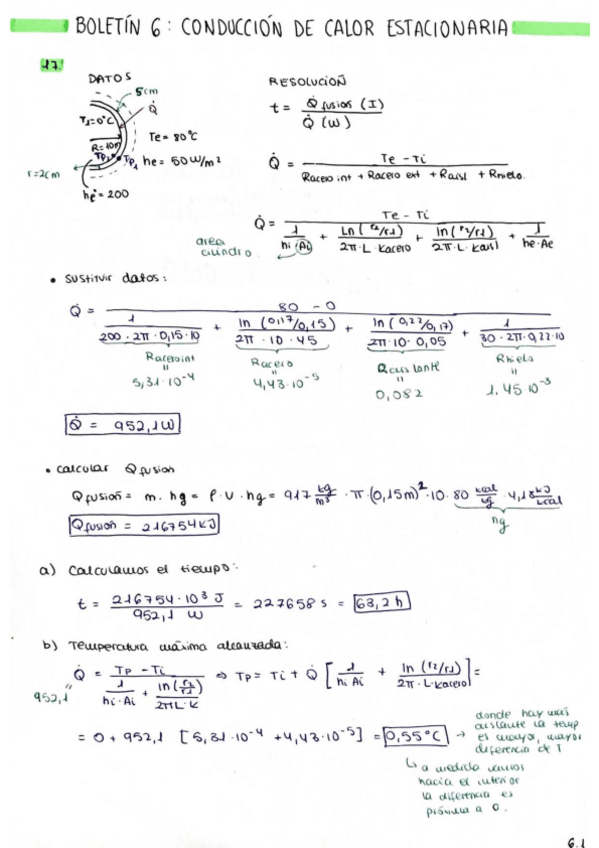 BOLETÍN 6: CONDUCCIÓN DE CALOR ESTACIONARIA
17.
DATOS
5cm
Q̇
T₁=0°C
Te = 80°C
R=10m
TP₂ TP₁
he = 50 W/m²
r=2cm
he = 200
RESOLUCIÓN
t = Q̇ fusión (I) / Q̇ (W)
Q̇ = Te - Ti / Racero int + Racero ext + Raisl + Rhielo.
Q̇ = Te - Ti / 1/hi·Ai + Ln(r2/r1)/2π·L·Kacero + ln(r2/r1)/2π·L·Kaisl + 1/he·Ae
area
cilindro.
• sustituir datos:
Q̇ = 80 - 0 / 1/200·2π·0,15·10 + ln(0,17/0,15)/2π·10·45 + ln(0,22/0,17)/2π·10·0,05 + 1/30·2π·0,22·10
Racero int = 5,31·10⁻⁴
Racero = 4,43·10⁻⁵
Raislante = 0,082
Rhielo = 1.45·10⁻³
Q̇ = 952,1W
• calcular Q fusion
Q fusión = m·hg = ρ·V·hg = 917 kg/m³ · π·(0,15m)²·10·80 kcal/kg · 4,18 kJ/kcal
hg
Q fusión = 216754 kJ
a) Calculamos el tiempo:
t = 216754·10³ J / 952,1 W = 227658 s = 63,2 h
b) Temperatura máxima alcanzada:
Q̇ = Tp - Ti / 1/hi·Ai + ln(r2/r1)/2πL·K ⇒ Tp = Ti + Q̇ [1/hi Ai + ln(r2/r1)/2π·L·Kacero] =
952,1
= 0 + 952,1 [5,31·10⁻⁴ + 4,43·10⁻⁵] = 0,55°C →
donde hay más
aislante la temp
es mayor, mayor
diferencia de T
↳ a medida vamos
hacia el interior
la diferencia es
próxima a 0.
6.1